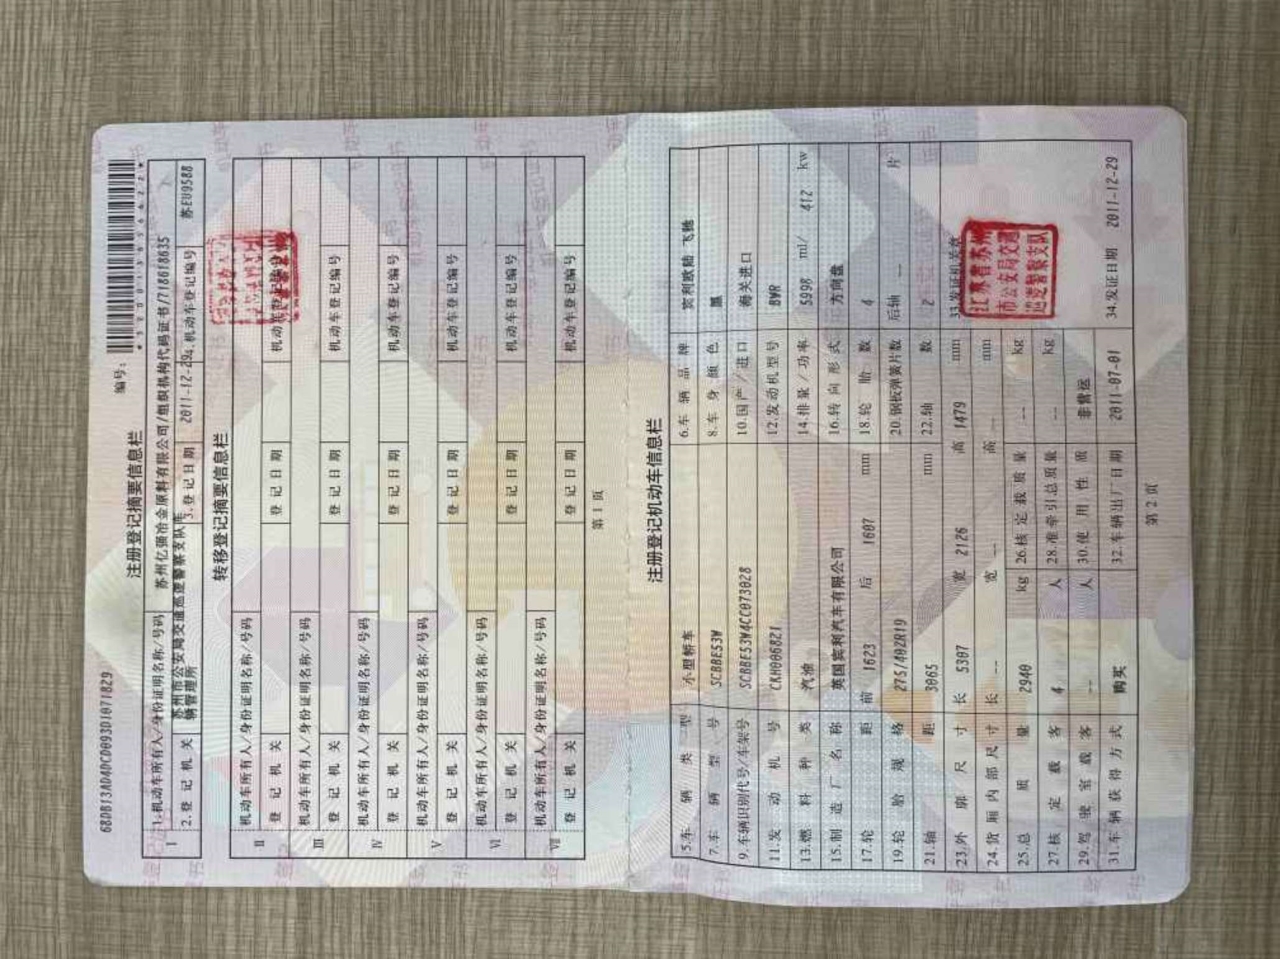 68DB13AD4DCD093D1071829
编号:
注册登记摘要信息栏
I 1.机动车所有人/身份证明名称/号码 苏州亿强冶金原料有限公司/组织机构代码证书/718618635
2.登记机关 苏州市公安局交通巡逻警察支队车辆管理所 3.登记日期 2011-12-29 4.机动车登记编号 苏EU9588
转移登记摘要信息栏
II 机动车所有人/身份证明名称/号码
登记机关 登记日期 机动车登记编号
III 机动车所有人/身份证明名称/号码
登记机关 登记日期 机动车登记编号
IV 机动车所有人/身份证明名称/号码
登记机关 登记日期 机动车登记编号
V 机动车所有人/身份证明名称/号码
登记机关 登记日期 机动车登记编号
VI 机动车所有人/身份证明名称/号码
登记机关 登记日期 机动车登记编号
VII 机动车所有人/身份证明名称/号码
登记机关 登记日期 机动车登记编号
第1页
注册登记机动车信息栏
5.车辆类型 小型轿车 6.车辆品牌 宾利欧陆 飞驰
7.车辆型号 SCBBE53W 8.车身颜色 黑
9.车辆识别代号/车架号 SCBBE53W4CC073028 10.国产/进口 海关进口
11.发动机号 CKH006821 12.发动机型号 BWR
13.燃料种类 汽油 14.排量/功率 5998 ml/ 412 kw
15.制造厂名称 英国宾利汽车有限公司 16.转向形式 方向盘
17.轮距 前 1623 后 1607 mm 18.轮胎数 4
19.轮胎规格 275/40ZR19 20.钢板弹簧片数 后轴 -- 片
21.轴距 3065 mm 22.轴数 2
23.外廓尺寸 长 5307 宽 2126 高 1479 mm 33.发证机关章
24.货厢内部尺寸 长 -- 宽 -- 高 -- mm
25.总质量 2940 kg 26.核定载质量 -- kg
27.核定载客 4 人 28.准牵引总质量 -- kg
29.驾驶室载客 -- 人 30.使用性质 非营运
31.车辆获得方式 购买 32.车辆出厂日期 2011-07-01 34.发证日期 2011-12-29
江苏省苏州
市公安局交通
巡逻警察支队
第2页